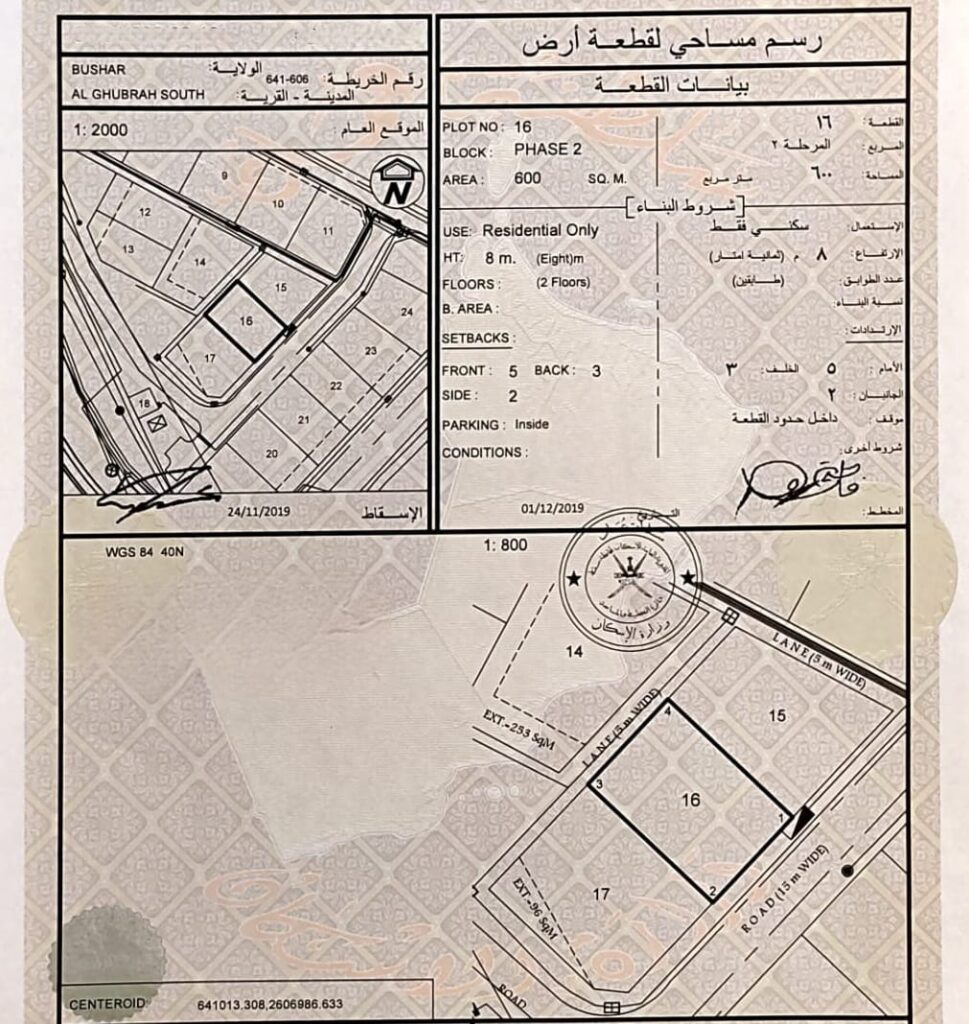 رسم مساحي لقطعة أرض
BUSHAR الولاية:
رقم الخريطة: 641-606
AL GHUBRAH SOUTH المدينة - القرية:
1: 2000 الموقع العام:
9
10
11
12
13
14
15
16
17
18
20
21
22
23
24
N
24/11/2019 الإسقاط
بيانات القطعة
PLOT NO: 16 القطعة: ١٦
BLOCK: PHASE 2 المربع: المرحلة ٢
AREA: 600 SQ. M. المساحة: ٦٠٠ متر مربع
[شروط البناء]
USE: Residential Only الإستعمال: سكني فقط
HT: 8 m. (Eight)m الإرتفاع: ٨ م (ثمانية امتار)
FLOORS: (2 Floors) عدد الطوابق: (طابقين)
B. AREA: نسبة البناء:
SETBACKS: الإرتدادات:
FRONT: 5 BACK: 3 الأمام: ٥ الخلف: ٣
SIDE: 2 الجانبان: ٢
PARKING: Inside موقف: داخل حدود القطعة
CONDITIONS: شروط أخرى:
01/12/2019 المخطط:
WGS 84 40N
1: 800
وزارة الإسكان
14
EXT.=253 SqM
LANE (5 m WIDE)
LANE (5 m WIDE)
15
4
3
16
1
2
17
EXT.=96 SqM
ROAD (15 m WIDE)
ROAD
CENTEROID: 641013.308,2606986.633